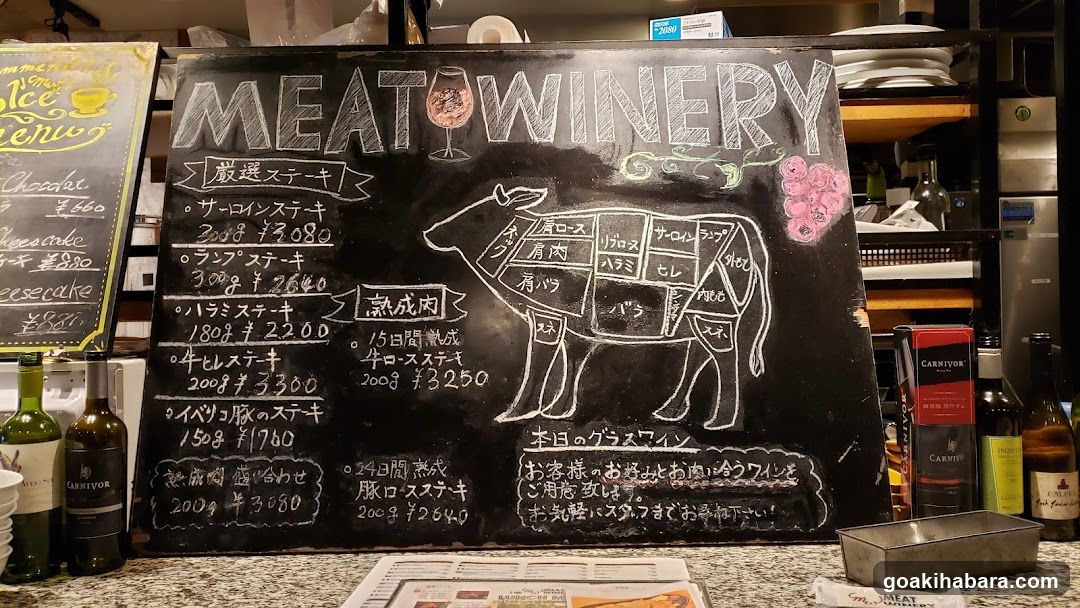 menu
Chocolat
¥660
cake
¥880
cheesecake
¥880
MEAT WINERY
厳選ステーキ
。サーロインステーキ
200g ¥3080
。ランプステーキ
300g ¥2640
。ハラミステーキ
180g ¥2200
。牛ヒレステーキ
200g ¥3300
。イベリコ豚のステーキ
150g
熟成肉盛り合わせ
200g ¥3080
熟成肉
。15日間熟成
牛ロースステーキ
200g ¥3250
。24日間熟成
豚ロースステーキ
200g ¥2640
ネック
肩ロース
肩肉
肩バラ
リブロース
ハラミ
サーロイン
ヒレ
バラ
ランプ
外もも
内もも
スネ
スネ
本日のグラスワイン
お客様のお好みとお肉に合うワインを
ご用意致します。
お気軽にスタッフまでお尋ね下さい!
2080
M
CARNIVOR
CARNIVOR
CARNIVOR
CARNIVOR
CALERA
MEAT
WINERY
goakihabara.com